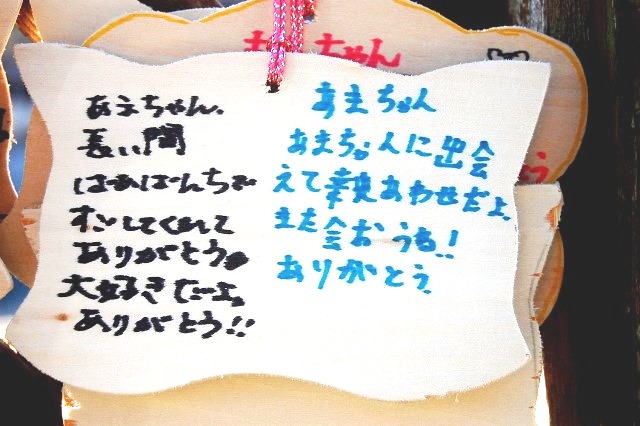 あまちゃん、
長い間
すごしてくれて
ありがとう。
大好きだーよ。
ありがとう!!
あまちゃん
あまちゃんに出会
えて幸せだよ。
また会おうね!
ありがとう。
ちゃん